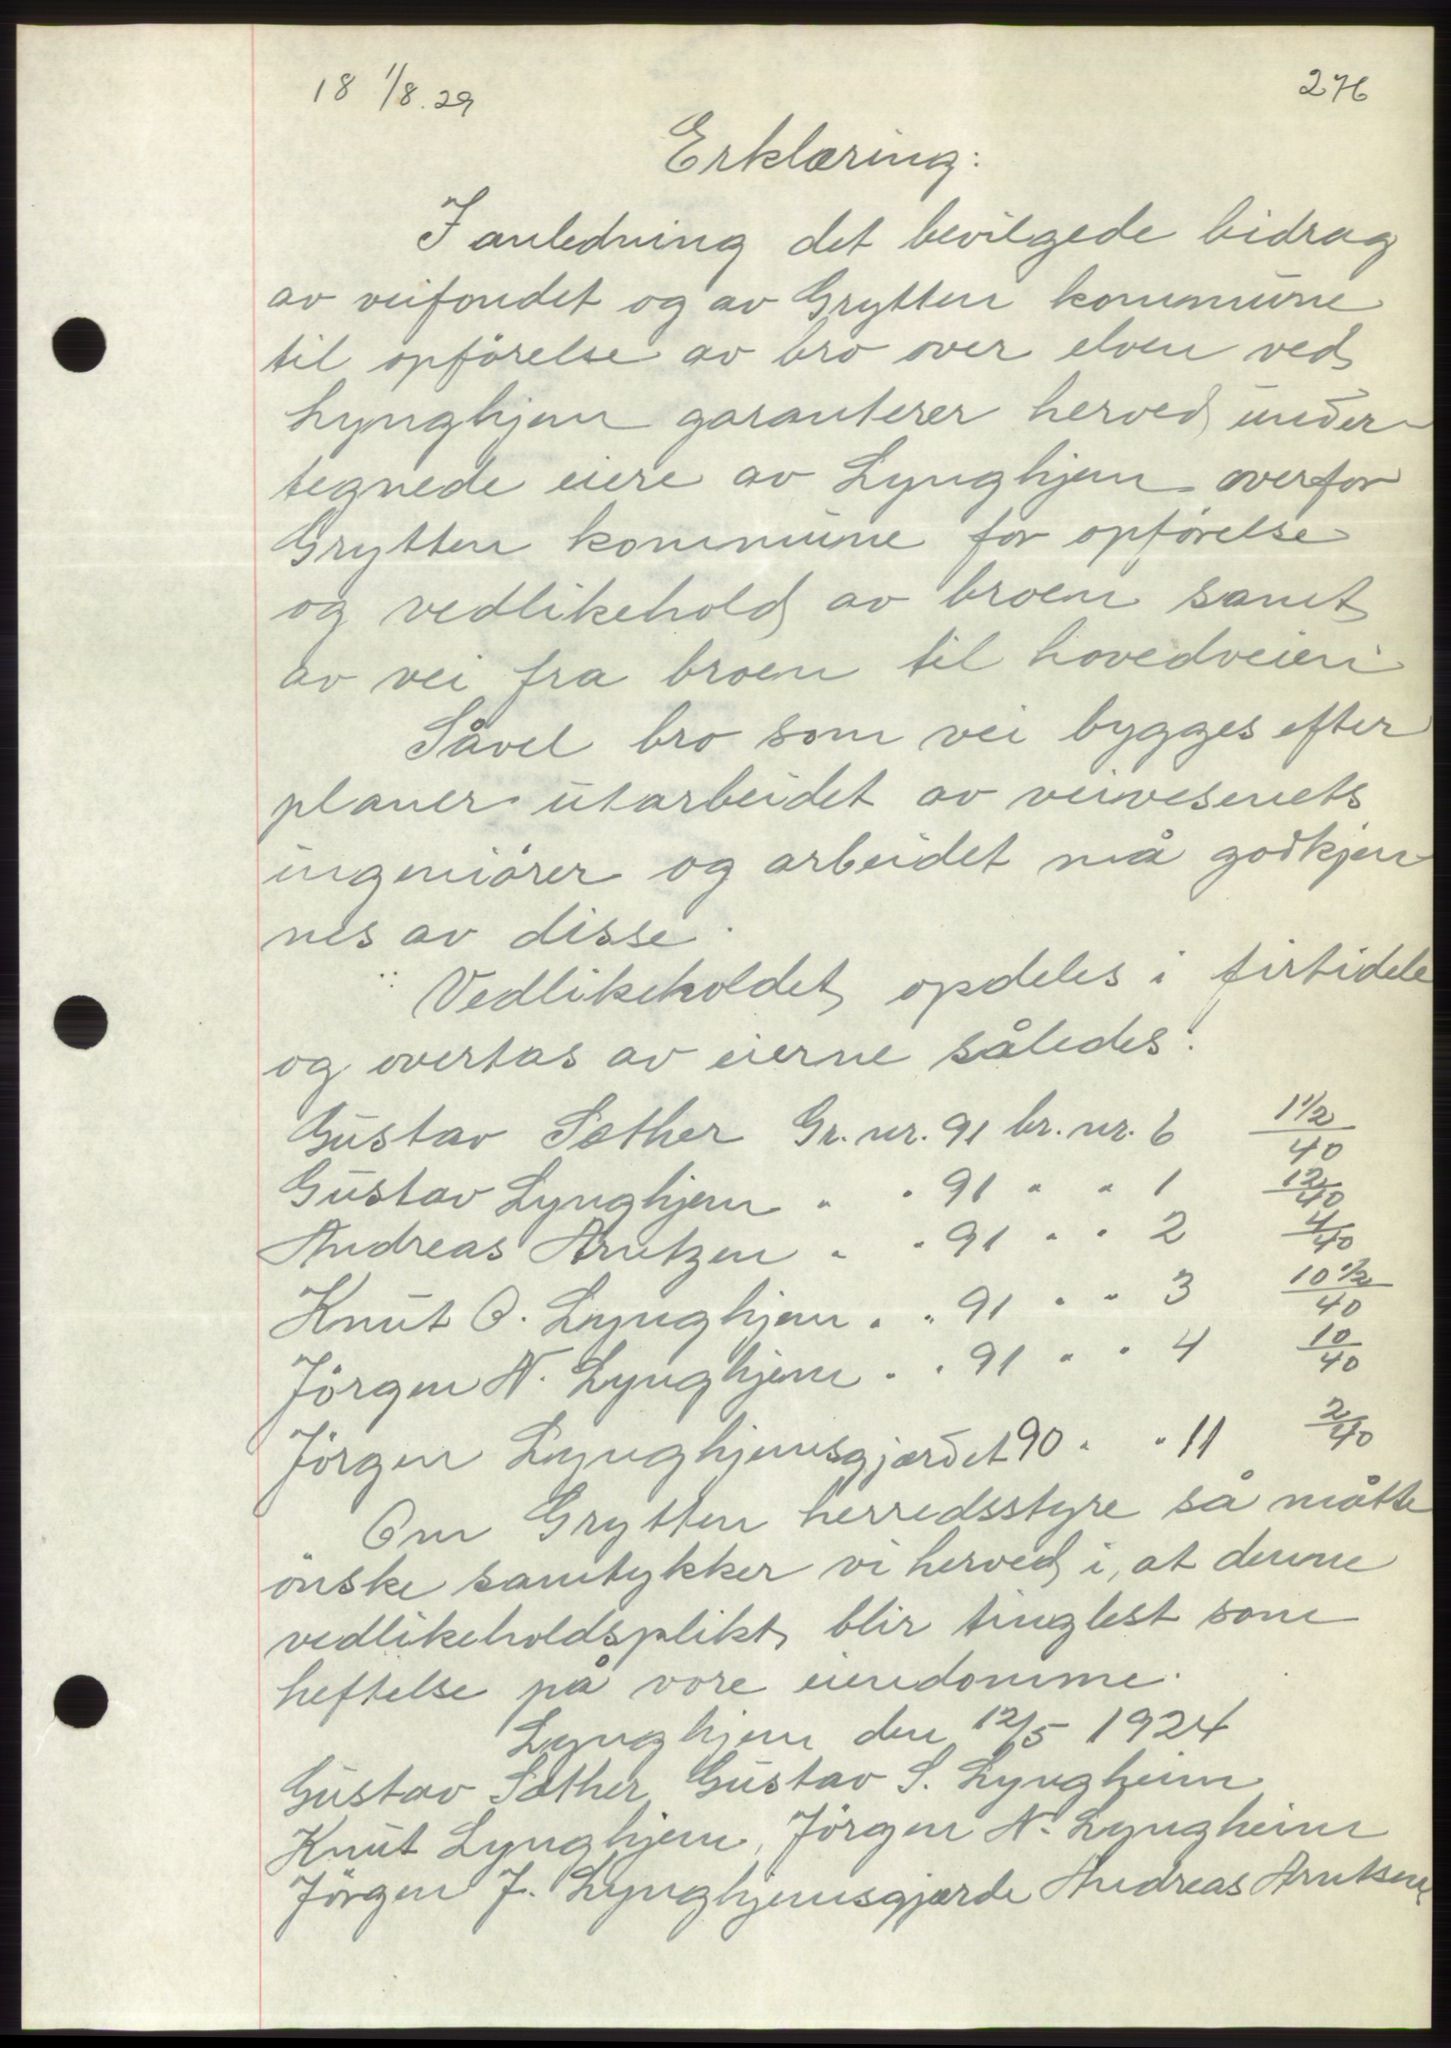 18 1/8.29
276
Erklæring:
I anledning det bevilgede bidrag
av veifondet og av Grytten kommune
til opförelse av bro over elven ved
Lynghjem garanterer herved under-
tegnede eiere av Lynghjem overfor
Grytten kommune for opförelse
og vedlikehold av broen samt
av vei fra broen til hovedveien.
Såvel bro som vei bygges efter
planer utarbeidet av veivesenets
ingeniörer og arbeidet må godkjen-
nes av disse.
Vedlikeholdet opdeles i firtidele
og overtas av eierne således:
Gustav Sæther Gr. nr. 91 br. nr. 6 1 1/2/40
Gustav Lynghjem " " 91 " " 1 12/40
Andreas Arntzen " " 91 " " 2 4/40
Knut O. Lynghjem " " 91 " " 3 10 1/2/40
Jörgen N. Lynghjem " " 91 " " 4 10/40
Jörgen Lynghjemsgjærdet 90 " " 11 2/40
Om Grytten herredsstyre så måtte
önske samtykker vi herved i, at denne
vedlikeholdsplikt blir tinglest som
heftelse på vore eiendomme.
Lynghjem den 12/5 1924
Gustav Sæther Gustav S. Lyngheim
Knut Lynghjem, Jörgen N. Lyngheim
Jörgen J. Lynghjemsgjærde Andreas Arntsen